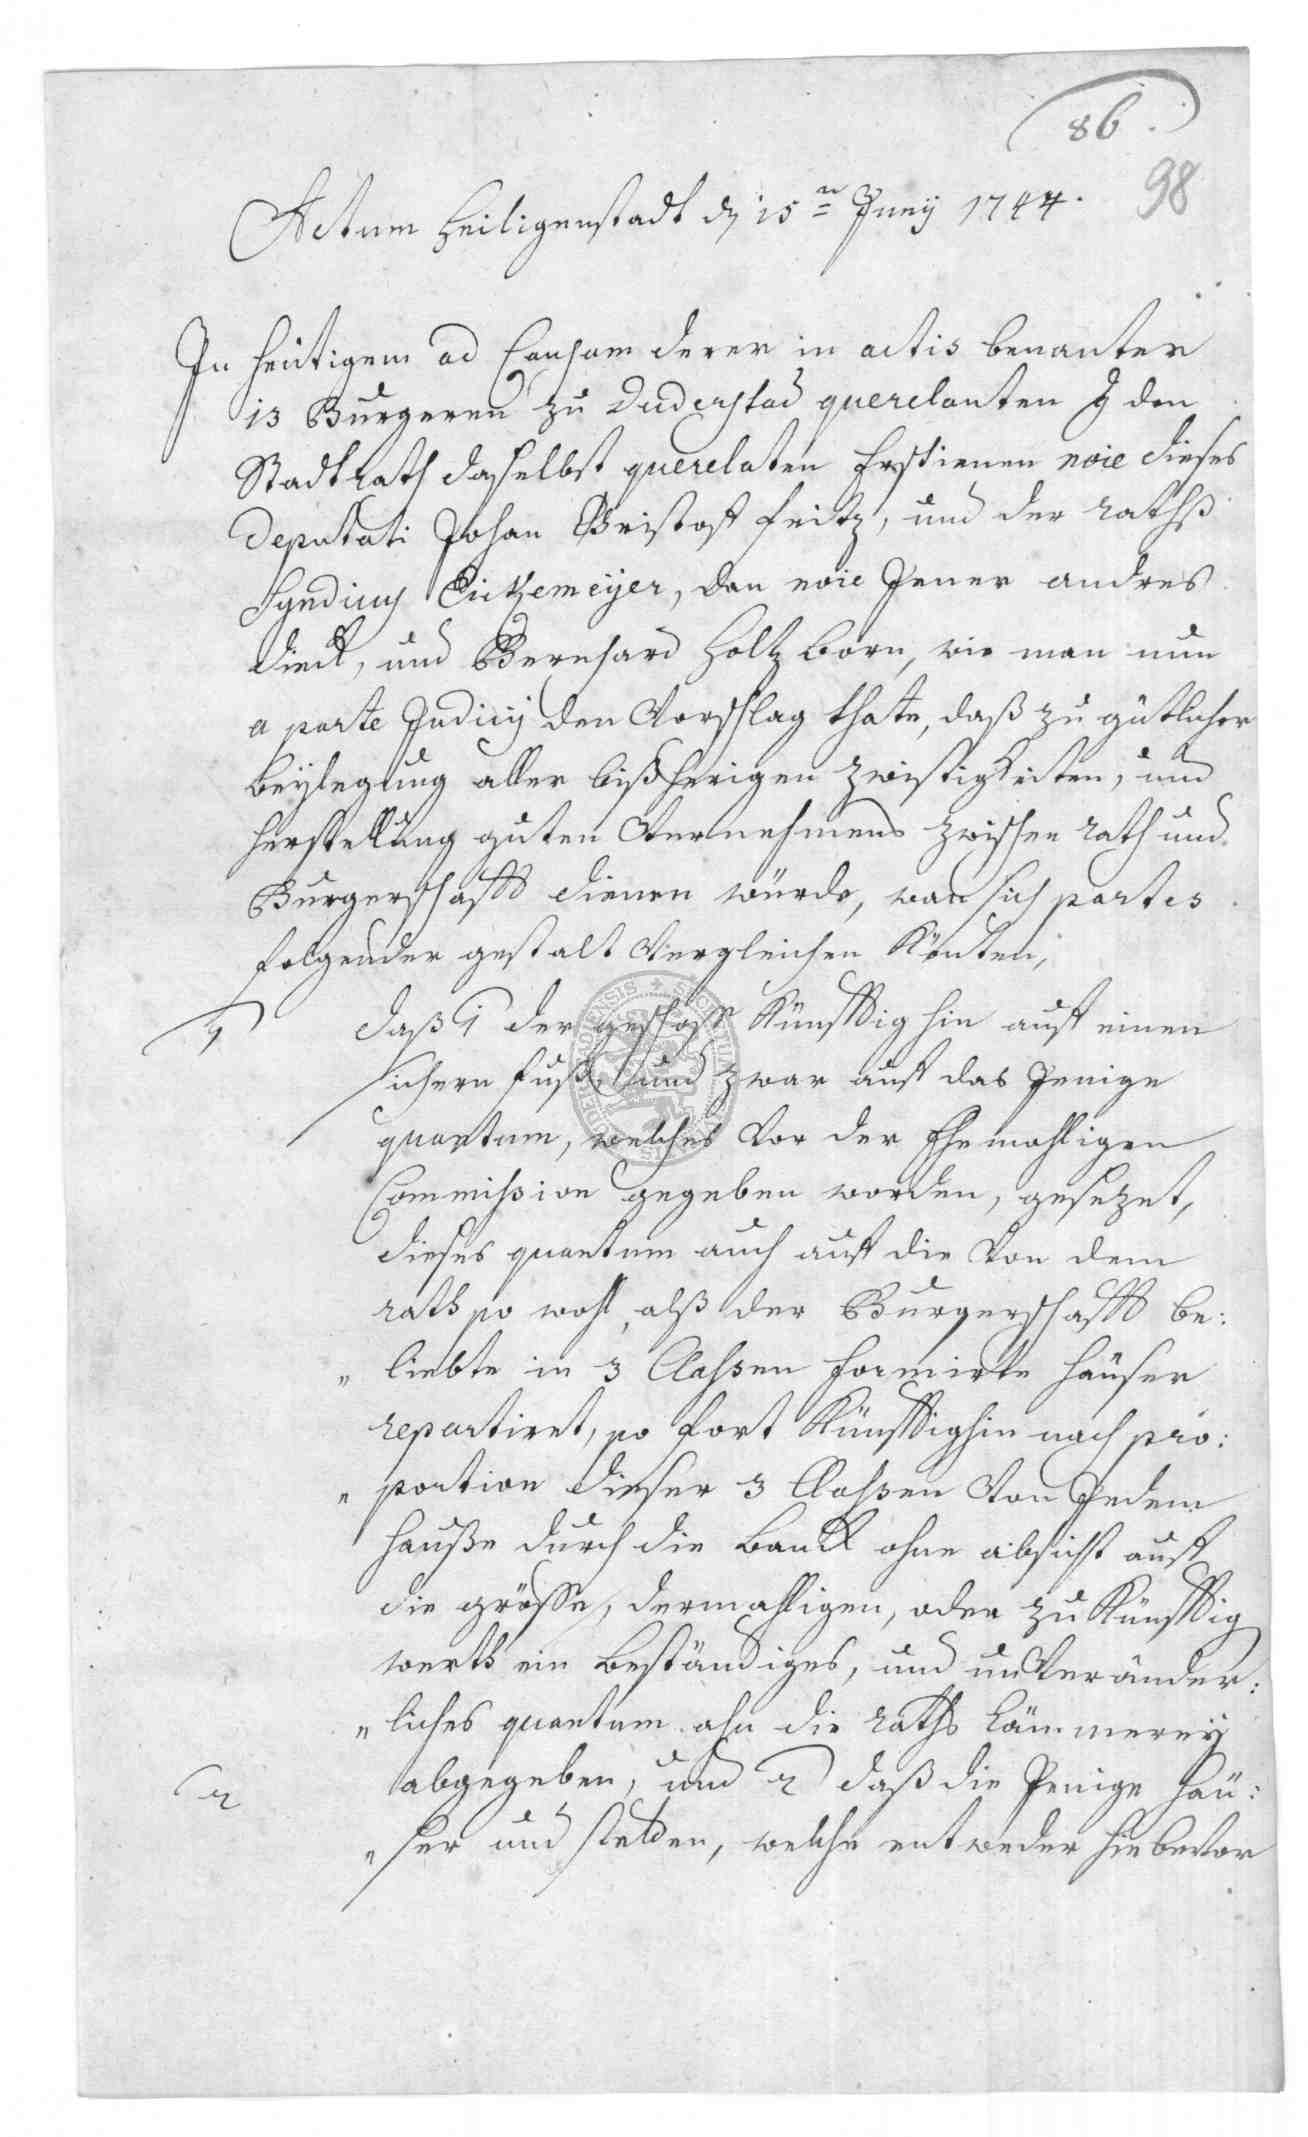 86.
98
Actum Heiligenstadt d 15ten Juny 1744.
In heütigem ad Causam derer in actis benanter
13 Burgeren zu Duderstad querelanten den
Stadtrath daselbst querelaten Erschienen noie dieses
Deputati Johan Christoff Fritz, und der raths
Syndicus Eickemeÿer, dan noie Jener andres
Dieck, und Bernhard Holtzborn, wie man nun
a parte Judicÿ den Vorschlag thate, daß zu gütlicher
beÿlegung aller bißherigen zwistigkeiten, und
herstellung guten Vernehmens zwischen rath und
Burgerschafft dienen würde, wan sich partes
folgender gestalt Vergleichen Könten,
1 daß 1 der geschoß Künfftig hin auff einen
sichern fuß, und zwar auff das Jenige
quantum, welches Vor der Ehemahligen
Commission gegeben worden, gesezet,
dieses quantum auch auff die Von dem
rath so wohl, alß der Burgerschafft be:
„ liebte in 3 Classen formirte häuser
repartiret, so fort Künfftighin nach pro:
„ portion dieser 3 Classen Von Jedem
hauße durch die banck ohne absicht auff
die grösse, dermahligen, oder zu Künfftig
werth ein beständiges, und unVeränder:
„ liches quantum ahn die raths Cämmereÿ
abgegeben, und 2 daß die Jenige häu:
2
„ ser und stelden, welche entweder hiebevor